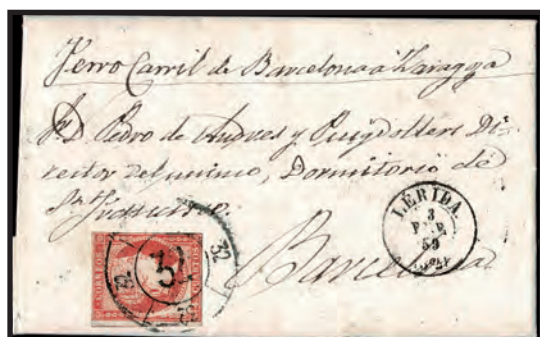 Ferro Carril de Barcelona a Zaragoza
Sr D. Pedro de Andres y Puigdollers Di=
rector del mismo, Dormitorio de
Sn Francisco.
Barcelona
LERIDA
3
FEB.
59
CORREOS
32
32
32